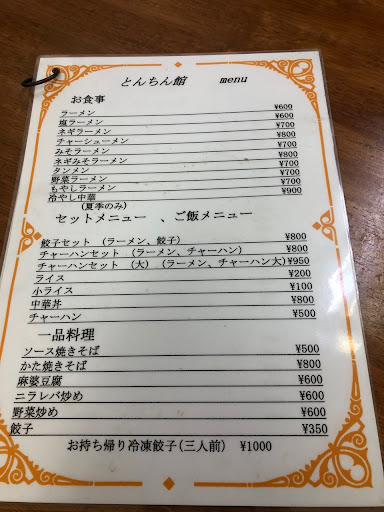 とんちん館 menu
お食事
ラーメン ¥600
塩ラーメン ¥600
ネギラーメン ¥700
チャーシューメン ¥800
みそラーメン ¥700
ネギみそラーメン ¥800
タンメン ¥700
野菜ラーメン ¥700
もやしラーメン ¥700
冷やし中華 ¥900
(夏季のみ)
セットメニュー 、ご飯メニュー
餃子セット (ラーメン、餃子) ¥800
チャーハンセット (ラーメン、チャーハン) ¥800
チャーハンセット (大) (ラーメン、チャーハン大) ¥950
ライス ¥200
小ライス ¥100
中華丼 ¥800
チャーハン ¥500
一品料理
ソース焼きそば ¥500
かた焼きそば ¥800
麻婆豆腐 ¥600
ニラレバ炒め ¥600
野菜炒め ¥600
餃子 ¥350
お持ち帰り冷凍餃子(三人前) ¥1000